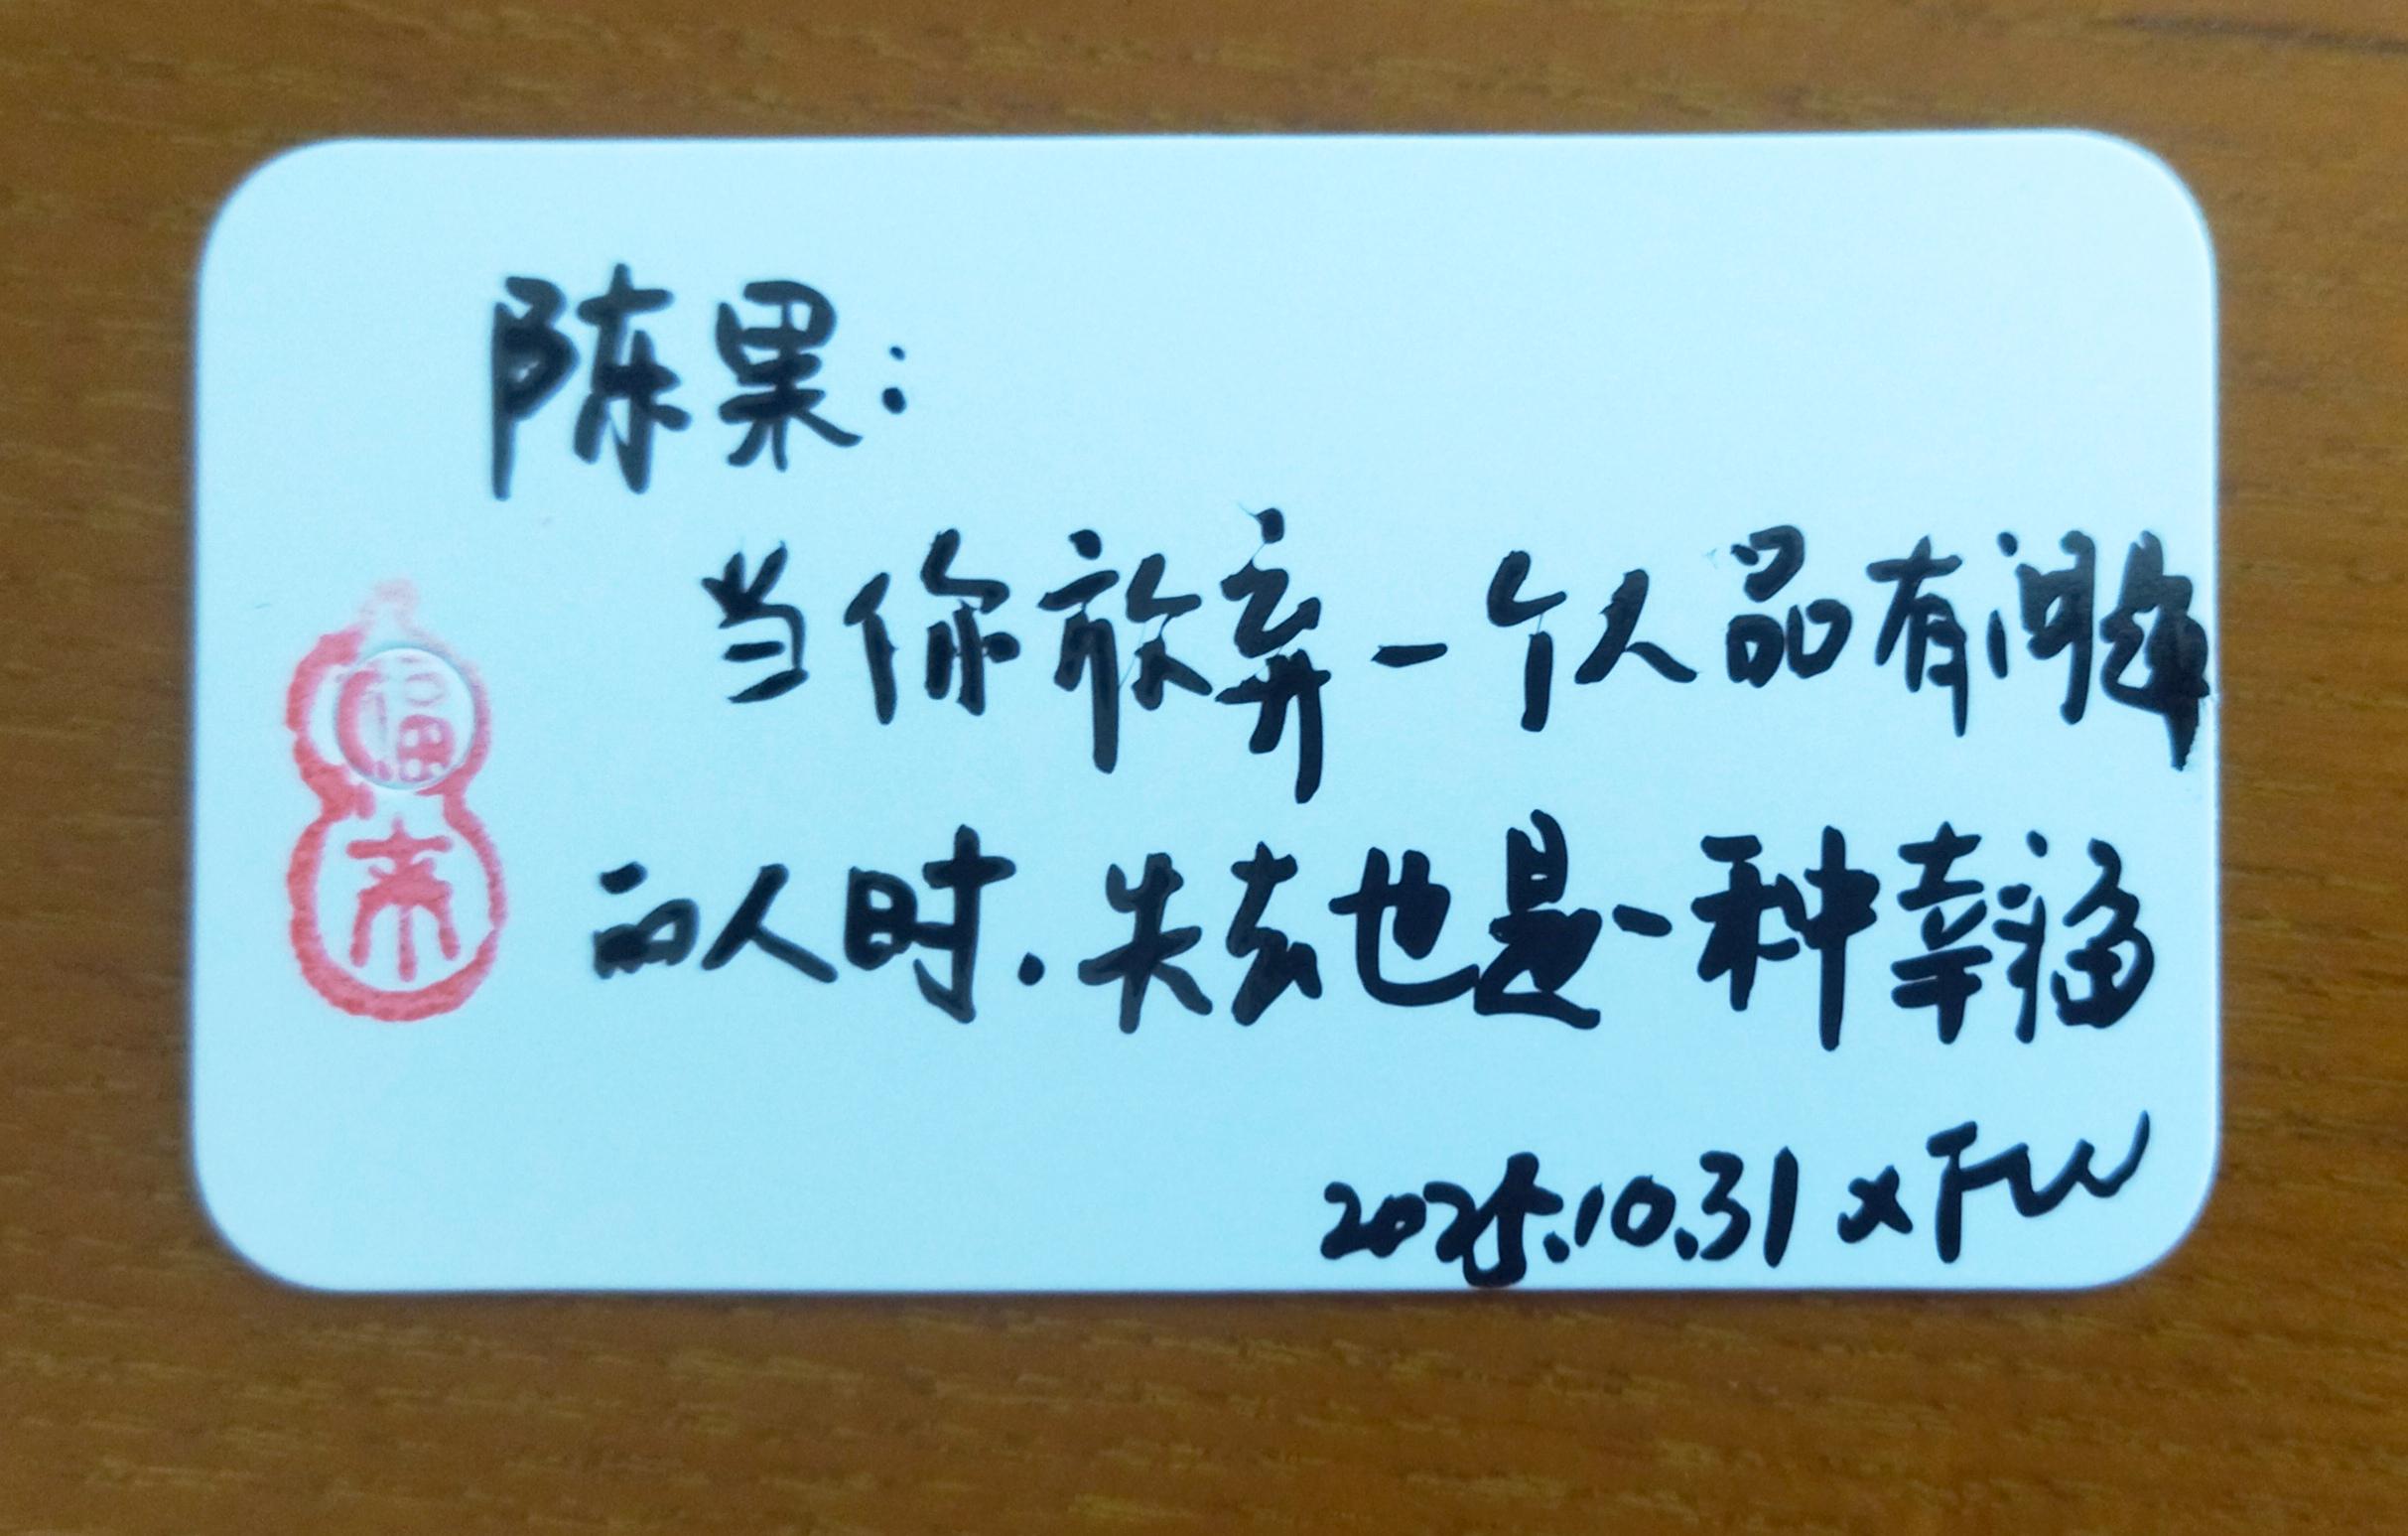 陈果：
当你放弃一个人品有问题
的人时.失去也是一种幸福
2025.10.31 XFW
福
来